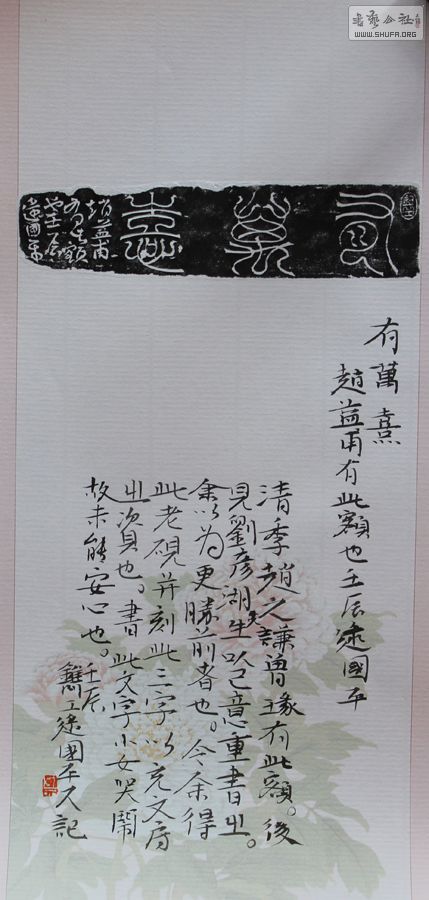 書藝公社
WWW.SHUFA.ORG
有萬憙
趙益甫
有此額
也壬辰
逯國平
有萬熹
趙益甫有此額也壬辰逯國平
清季趙之謙曾有此額。後
見劉彥湖先生以己意重書㞢。
余以为更勝前者也。今余得
此老硯并刻此三字以充文房
㞢資也。書此文字小女哭鬧
故未能安心也。壬辰
逯國平又記